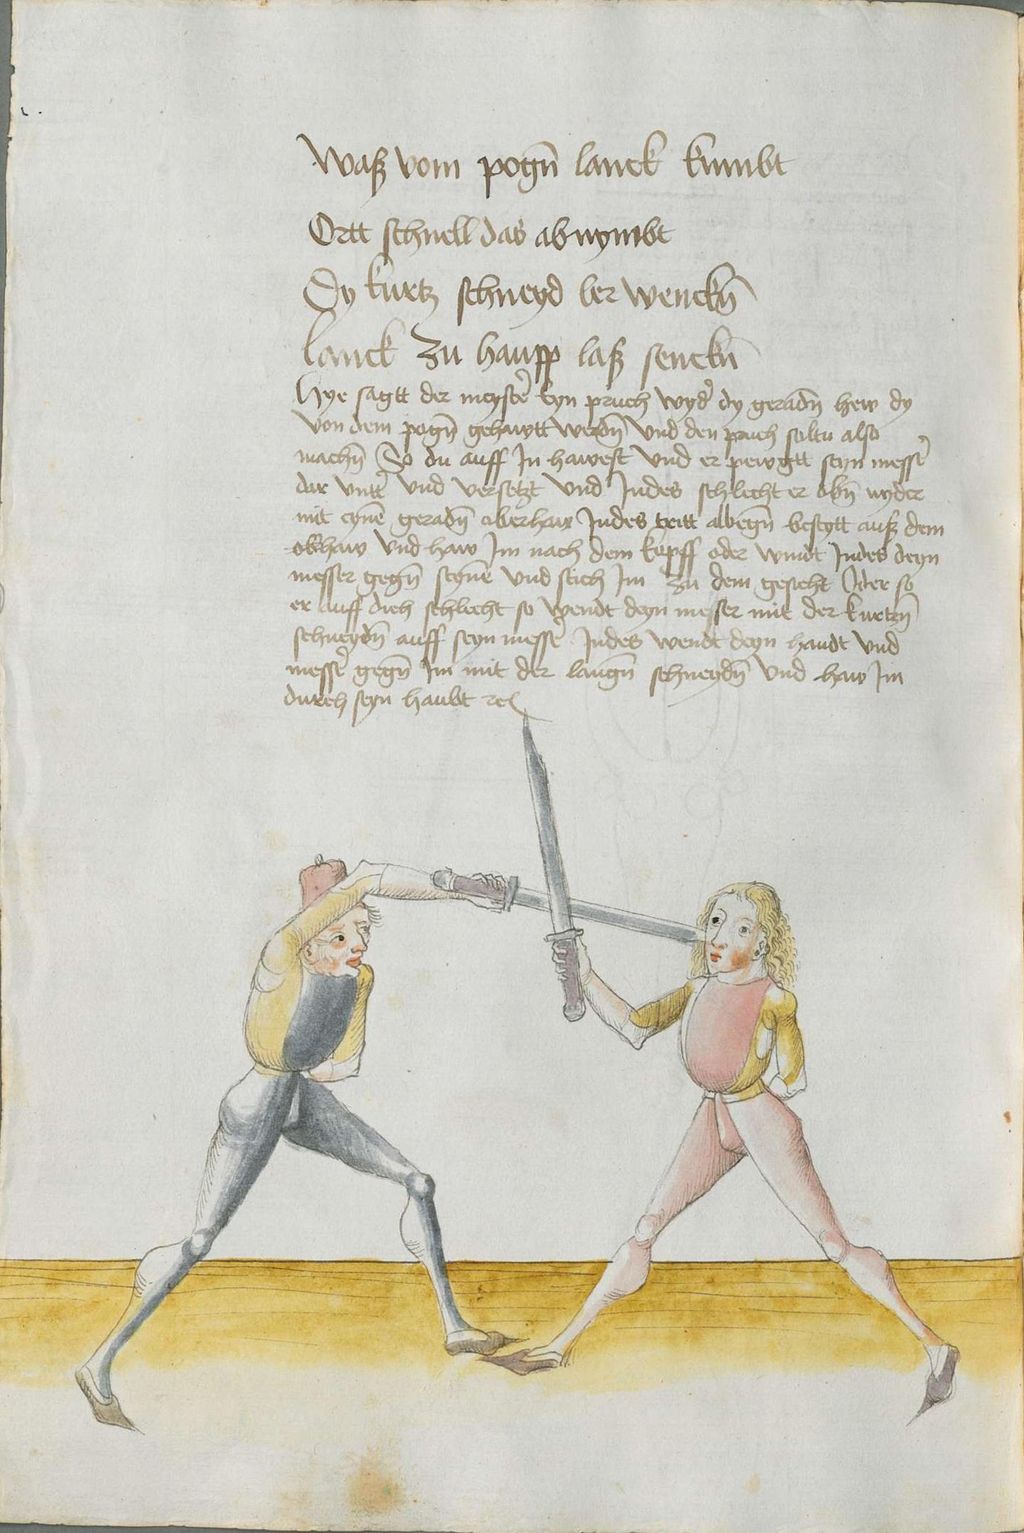 Waß vom pogn̄ lanck kumbt
Ortt schnell das abnymbt
Dy kurtz schneyd ber wenckn̄
Lanck zu haupp laß senckn̄
Hye sagtt der meyster̄ eyn pruch wyder̄ dy geradn̄ hew dy
von dem pogn̄ gehawtt werdn̄ vnd den pruch soltu also
machn̄ So du auff In hawest vnd er pewgtt seyn messer̄
dar vnter̄ vnd versetzt vnd Indes schlecht er obn̄ nyder
mit eyne᷑ geradn̄ oberhaw Indes tritt albegn̄ beseytt auß dem
obhaw vnd haw Im nach dem kopff oder windt Indes deyn
messer gegn̄ seyne᷑ vnd stich Im zu dem gesicht Oder so
er auff dich schlecht so wendt deyn messer mit der kurtzn̄
schneydn̄ auff seyn messer̄ Indes wendt deyn handt vnd
messer̄ gegn̄ Im mit der langn̄ schneydn̄ vnd haw Im
durch seyn haubt